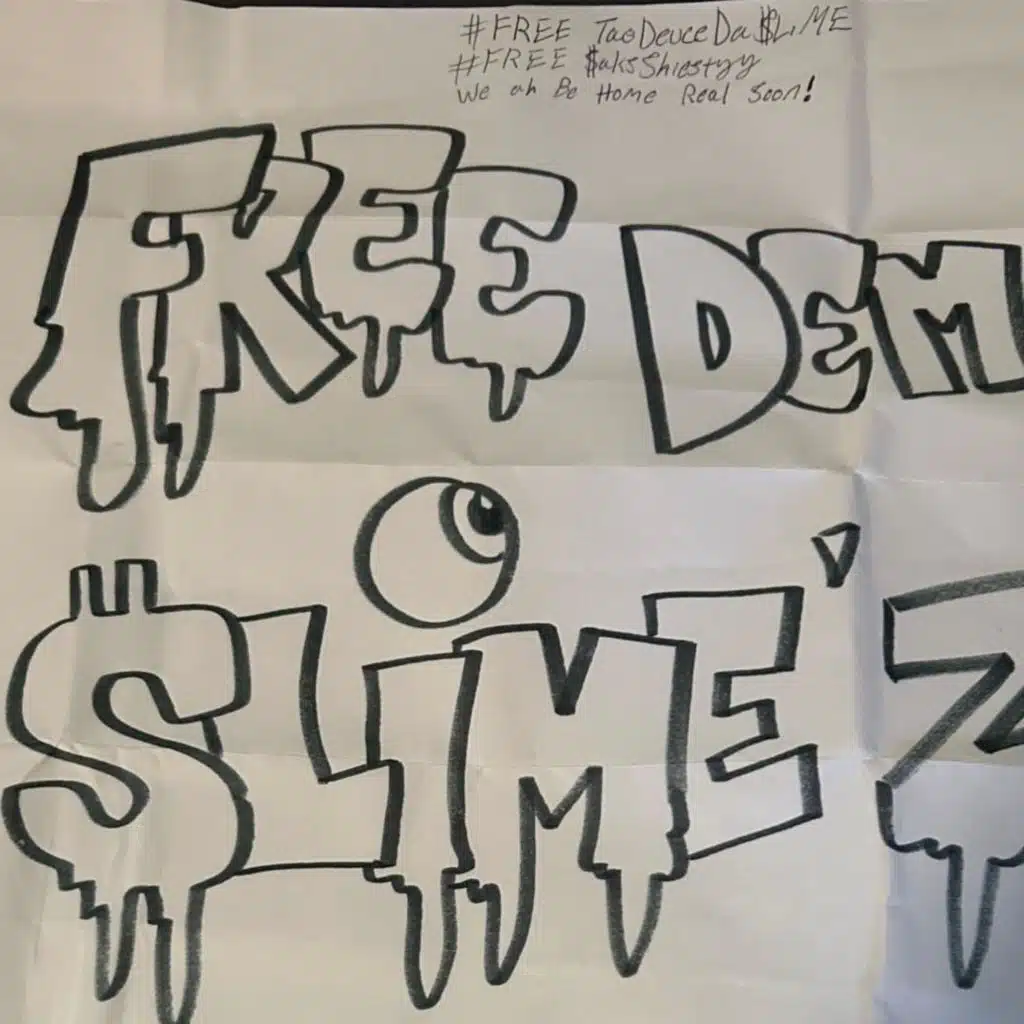 #FREE TaoDeuceDa$LiME
#FREE $aksShiestyy
We ah Be Home Real Soon!
FREE DEM
$LiME'Z